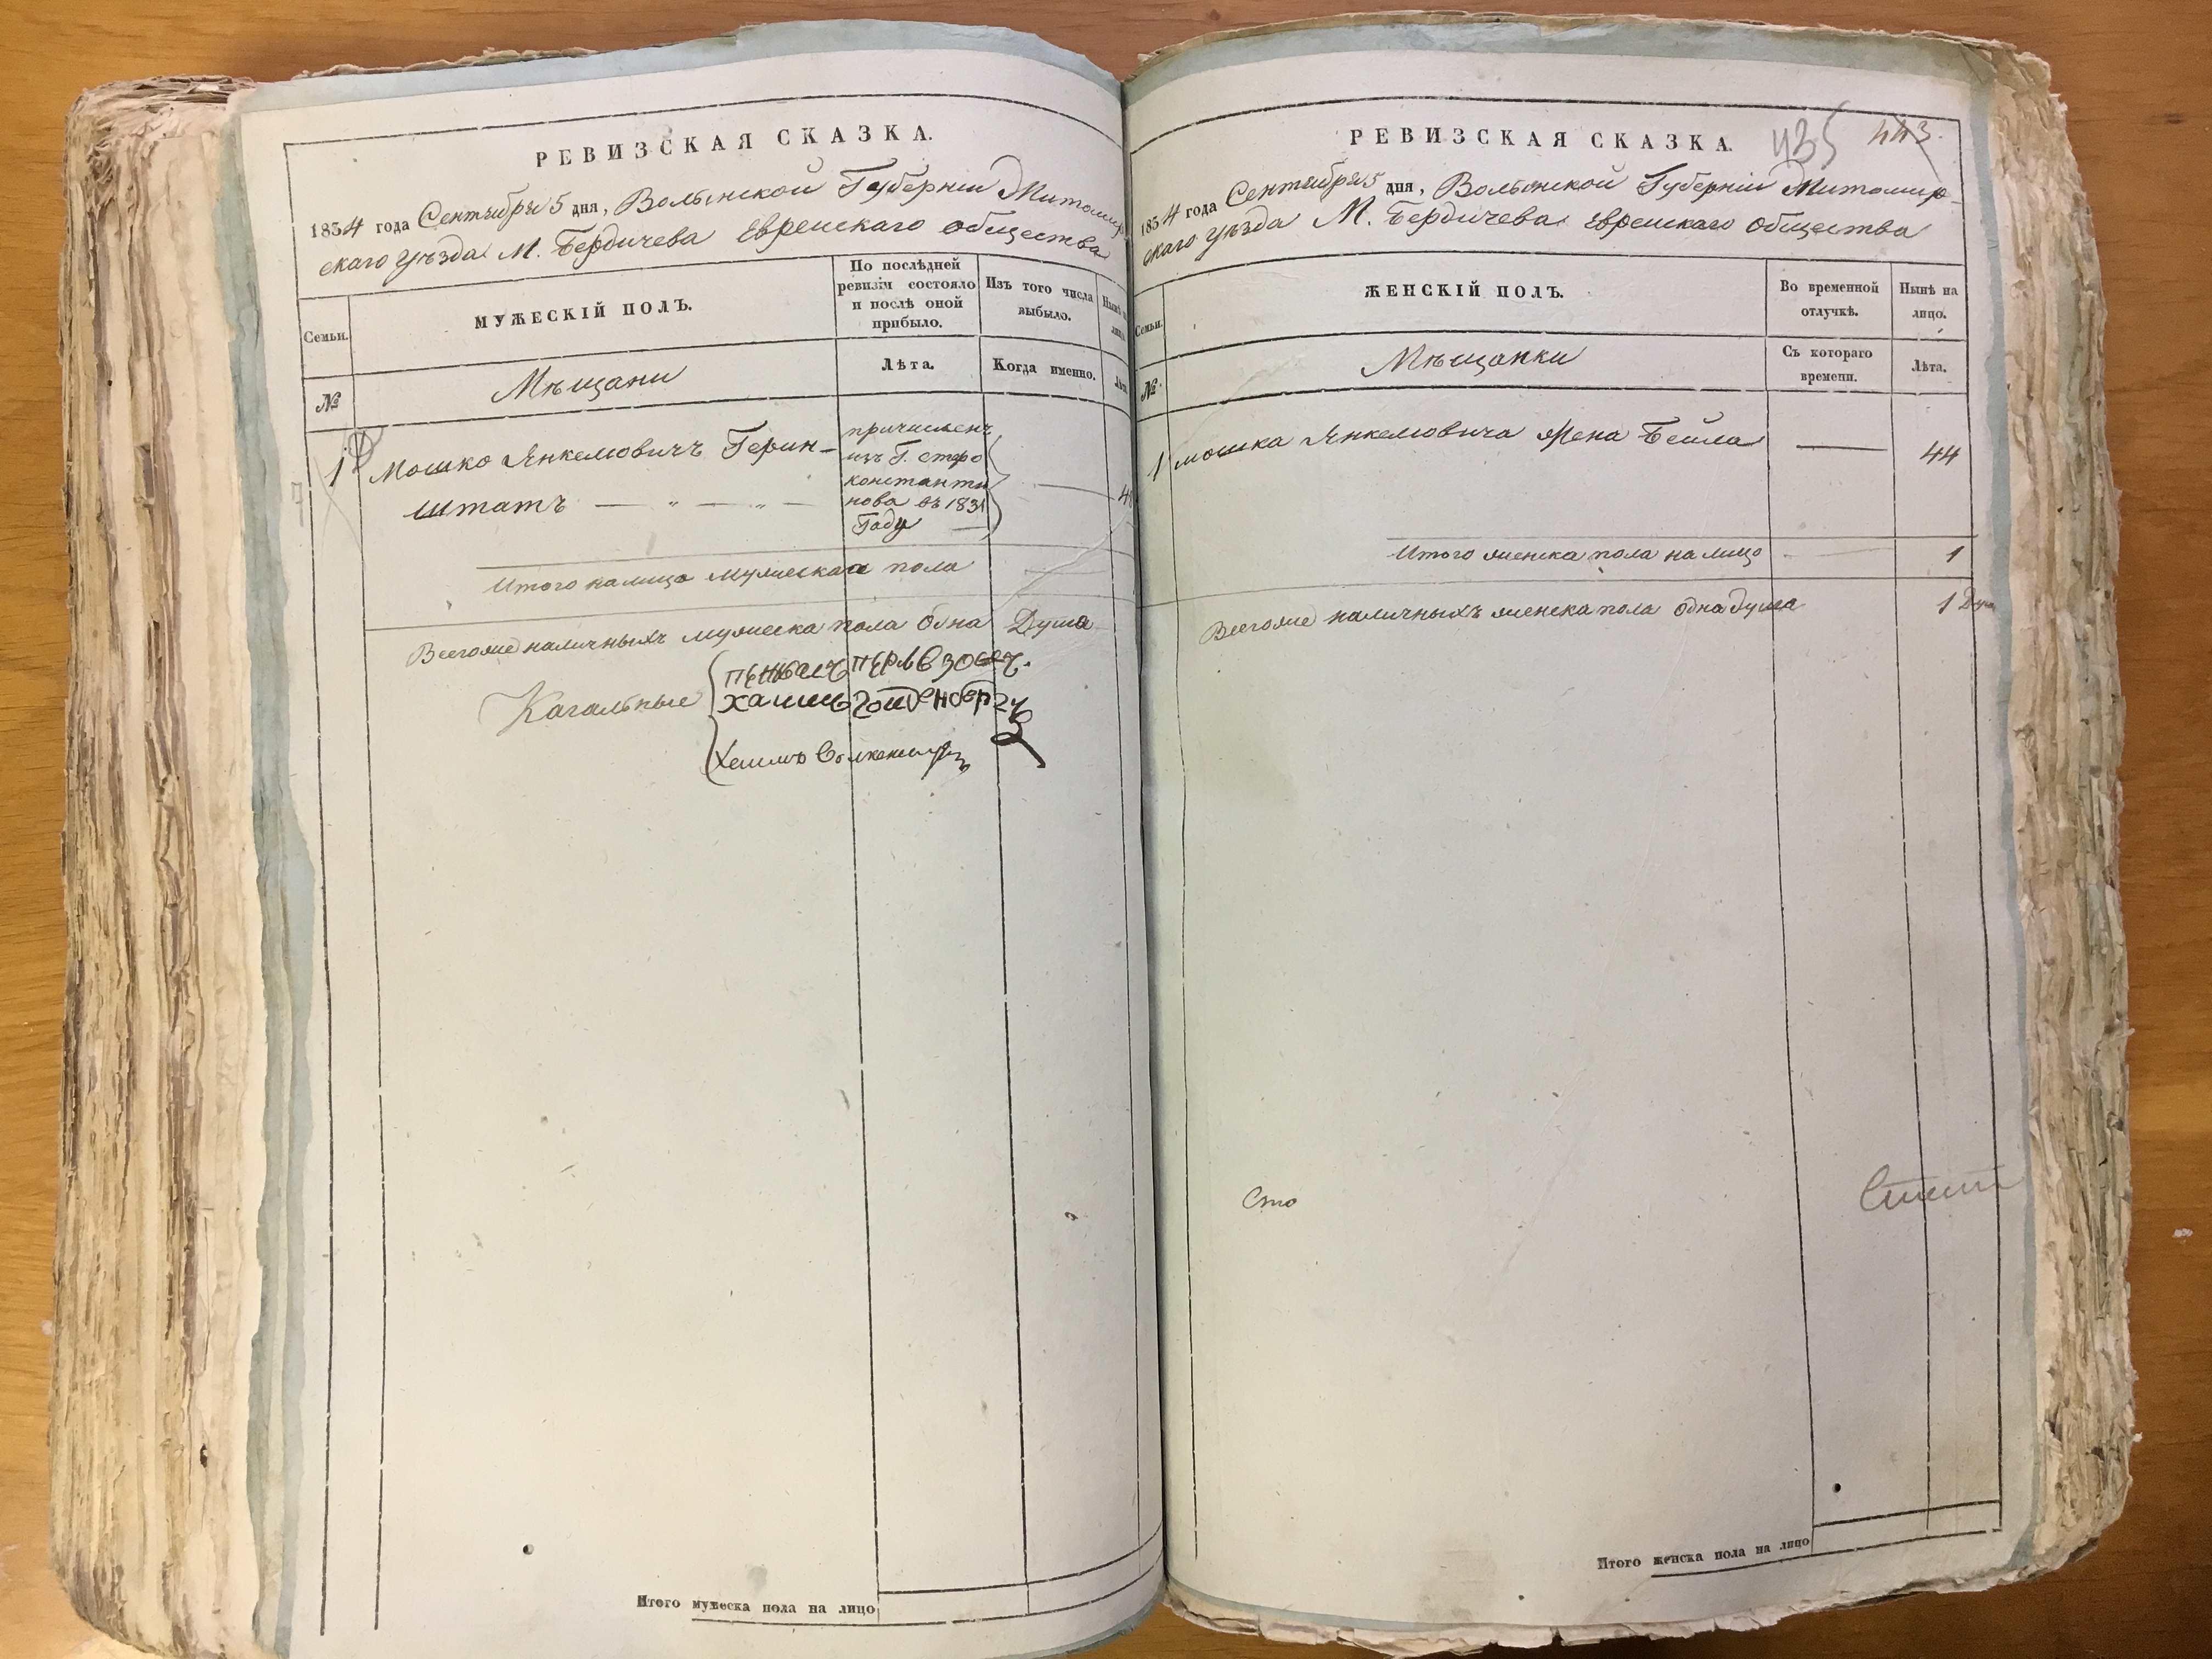 РЕВИЗСКАЯ СКАЗКА.
1834 года Сентября 5 дня, Волынской Губерніи Житомир
скаго уѣзда М. Бердичева Еврейскаго общества
Семьи.
МУЖЕСКІЙ ПОЛЪ.
По послѣдней
ревизіи состояло
и послѣ оной
прибыло.
Изъ того числа
выбыло.
№
Мѣщани
Лѣта.
Когда именно.
1 Мошко Янкелювичъ Герин-
штатъ — „ — „ —
причисленъ
изъ Г. старо
константи
нова въ 1831
Году —
Итого на лицо мужескаго пола
Всегоже наличныхъ мужеска пола одна Душа
Кагальные
Хаимъ
Хаимъ
Итого мужеска пола на лицо
РЕВИЗСКАЯ СКАЗКА.
435 443.
1834 года Сентября 5 дня, Волынской Губерніи Житомир-
скаго уѣзда М. Бердичева Еврейскаго общества
Семьи.
ЖЕНСКІЙ ПОЛЪ.
Во временной
отлучкѣ.
Нынѣ на
лицо.
№
Мѣщанки
Съ котораго
времени.
Лѣта.
1 Мошка Янкелювича Жена Бейла — 44
Итого женска пола на лицо — 1
Всегоже наличныхъ женска пола одна душа 1 Душ
Сто
Итого женска пола на лицо